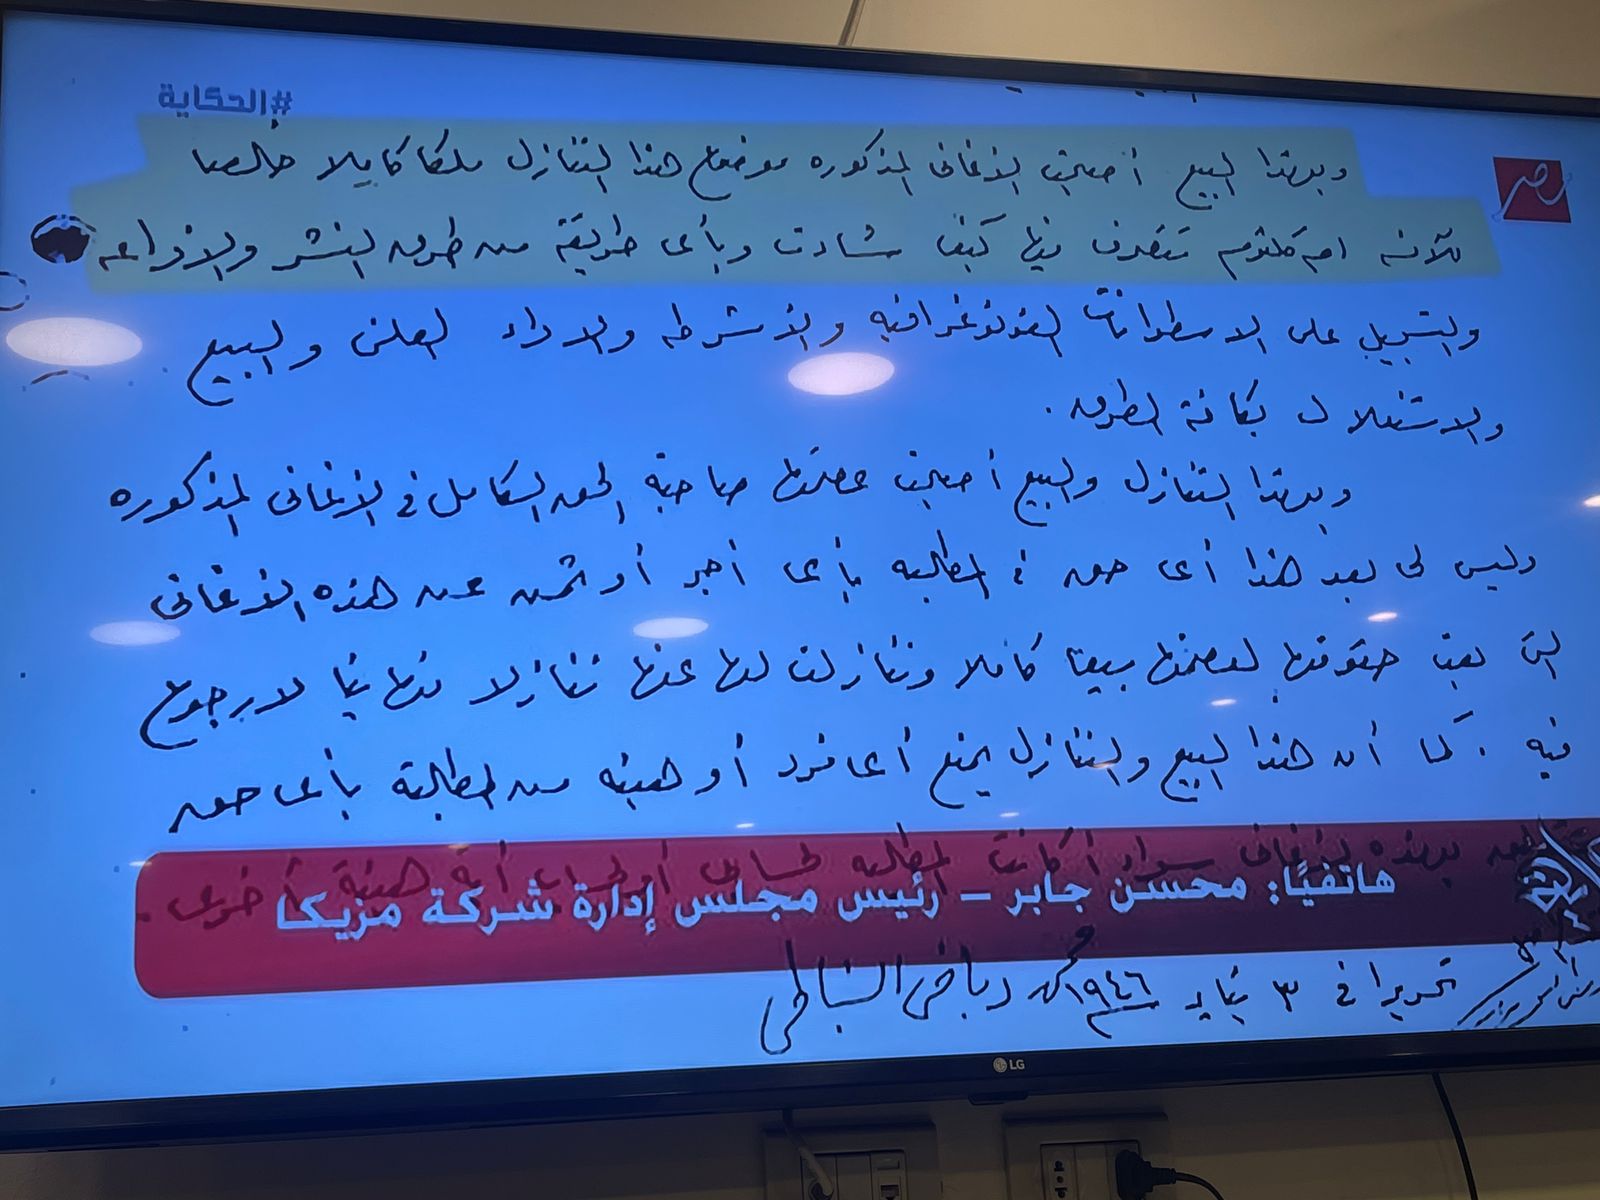 #الحكاية
وبهذا البيع أصبحت الأغانى المذكوره موضوع هذا التنازل ملكا كاملا خالصا
للآنسه ام كلثوم تتصرف فيها كيف شاءت وبأى طريقة من طرق النشر والإذاعه
والتسجيل على الاسطوانات الفونوغرافيه والأشرطه والاداء العلنى والبيع
والاستغلال بكافة الطرق.
وبهذا التنازل والبيع أصبحت عصمتها صاحبة الحق الكامل فى الأغانى المذكوره
وليس لى بعد هذا أى حق فى المطالبه بأى أجر أو ثمن عن هذه الأغانى
التى بعت حقوقها لعصمتها بيعا كاملا وتنازلت لها عنها تنازلا نهائيا لا رجوع
فيه. كما أن هذا البيع والتنازل يمنع أى فرد أو هيئه من المطالبة بأى حق
بهذه الأغانى سواء أكانت المطالبه لحسابى أو لحساب أية هيئة أخرى.
هاتفيًا: محسن جابر – رئيس مجلس إدارة شركة مزيكا
تحريرا فى ٣ يناير ١٩٤٦ محمد رياض السنباطى
مصر
LG